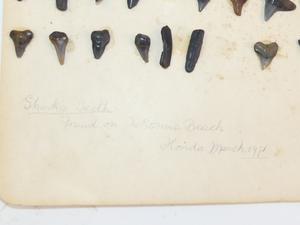 Sharks Teeth
found on Beach
Florida March